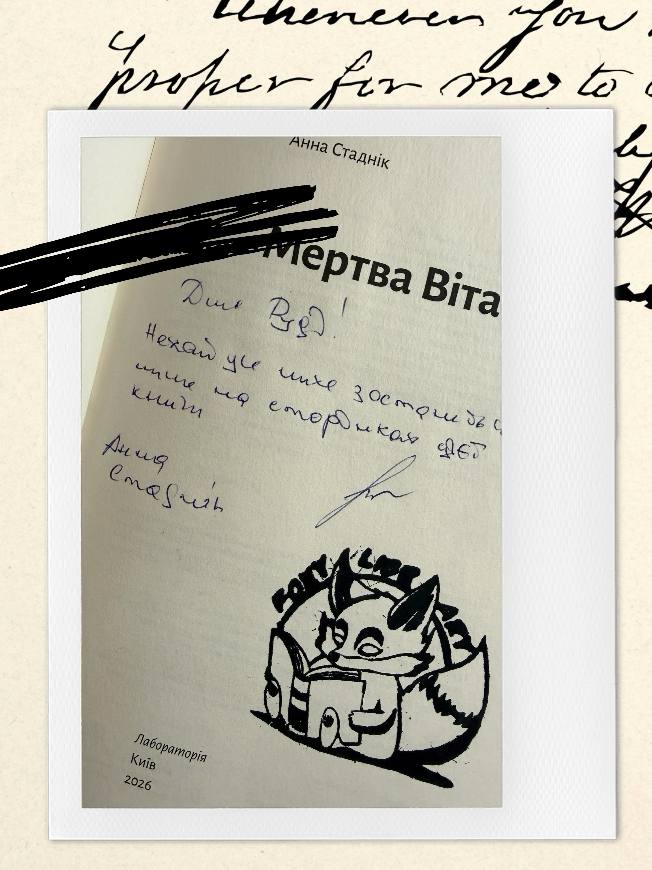 Whenever you
proper for me to
Анна Стаднік
Мертва Віта
Для Руді!
Нехай це лихо зостанеться
лише на сторінках цієї
книги
Анна
Стаднік
FOXY LIBRARY
Лабораторія
Київ
2026